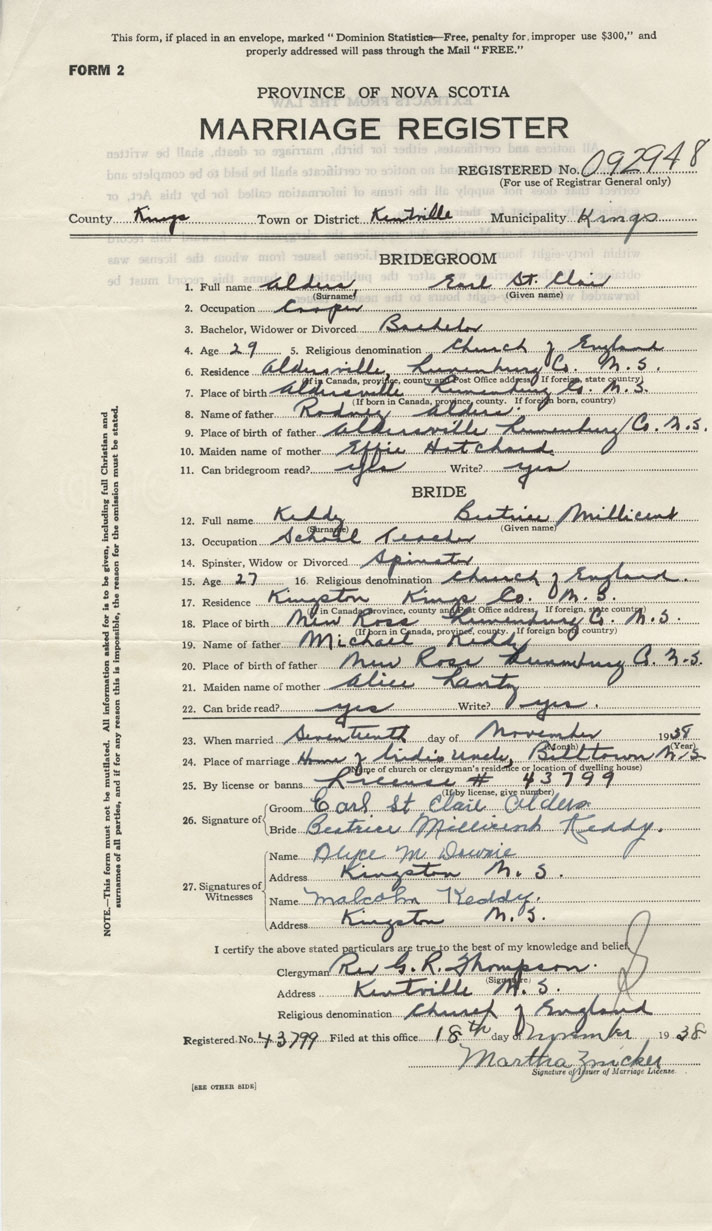 This form, if placed in an envelope, marked “Dominion Statistics—Free, penalty for improper use $300,” and
properly addressed will pass through the Mail “FREE.”
FORM 2
PROVINCE OF NOVA SCOTIA
MARRIAGE REGISTER
REGISTERED No. 092948
(For use of Registrar General only)
County Kings Town or District Kentville Municipality Kings
BRIDEGROOM
1. Full name Alders, Earl St. Clair
(Surname) (Given name)
2. Occupation Cooper
3. Bachelor, Widower or Divorced Bachelor
4. Age 29 5. Religious denomination Church of England
6. Residence Aldersville, Lunenburg Co. N.S.
(If in Canada, province, county and Post Office address. If foreign, state country)
7. Place of birth Aldersville Lunenburg Co. N.S.
(If born in Canada, province, county. If foreign born, country)
8. Name of father Rodney Alders.
9. Place of birth of father Aldersville Lunenburg Co. N.S.
10. Maiden name of mother Effie Hatchard
11. Can bridegroom read? yes Write? yes
BRIDE
12. Full name Keddy Beatrice Millicent
(Surname) (Given name)
13. Occupation School Teacher
14. Spinster, Widow or Divorced Spinster
15. Age 27 16. Religious denomination Church of England.
17. Residence Kingston Kings Co. N.S.
(If in Canada, province, county and Post Office address. If foreign, state country)
18. Place of birth New Ross Lunenburg Co. N.S.
(If born in Canada, province, county. If foreign born, country)
19. Name of father Michael Keddy
20. Place of birth of father New Ross Lunenburg Co. N.S.
21. Maiden name of mother Alice Lantz
22. Can bride read? yes Write? yes.
23. When married Seventeenth day of November 1938
(Month) (Year)
24. Place of marriage Home of bride's uncle, Billtown N.S.
(Name of church or clergyman's residence or location of dwelling house)
25. By license or banns License # 43799
(If by license, give number)
26. Signature of Groom Earl St Clair Alders
Bride Beatrice Millicent Keddy.
27. Signatures of Witnesses
Name Alyce M Downie
Address Kingston N.S.
Name Malcolm Keddy.
Address Kingston N.S.
I certify the above stated particulars are true to the best of my knowledge and belief.
Clergyman Rev G. R. Thompson.
(Signature)
Address Kentville N.S.
Religious denomination Church of England
Registered No. 43799 Filed at this office 18th day of November 1938
Martha Zwicker
Signature of Issuer of Marriage License.
[SEE OTHER SIDE]
NOTE.—This form must not be mutilated. All information asked for is to be given, including full Christian and
surnames of all parties, and if for any reason this is impossible, the reason for the omission must be stated.